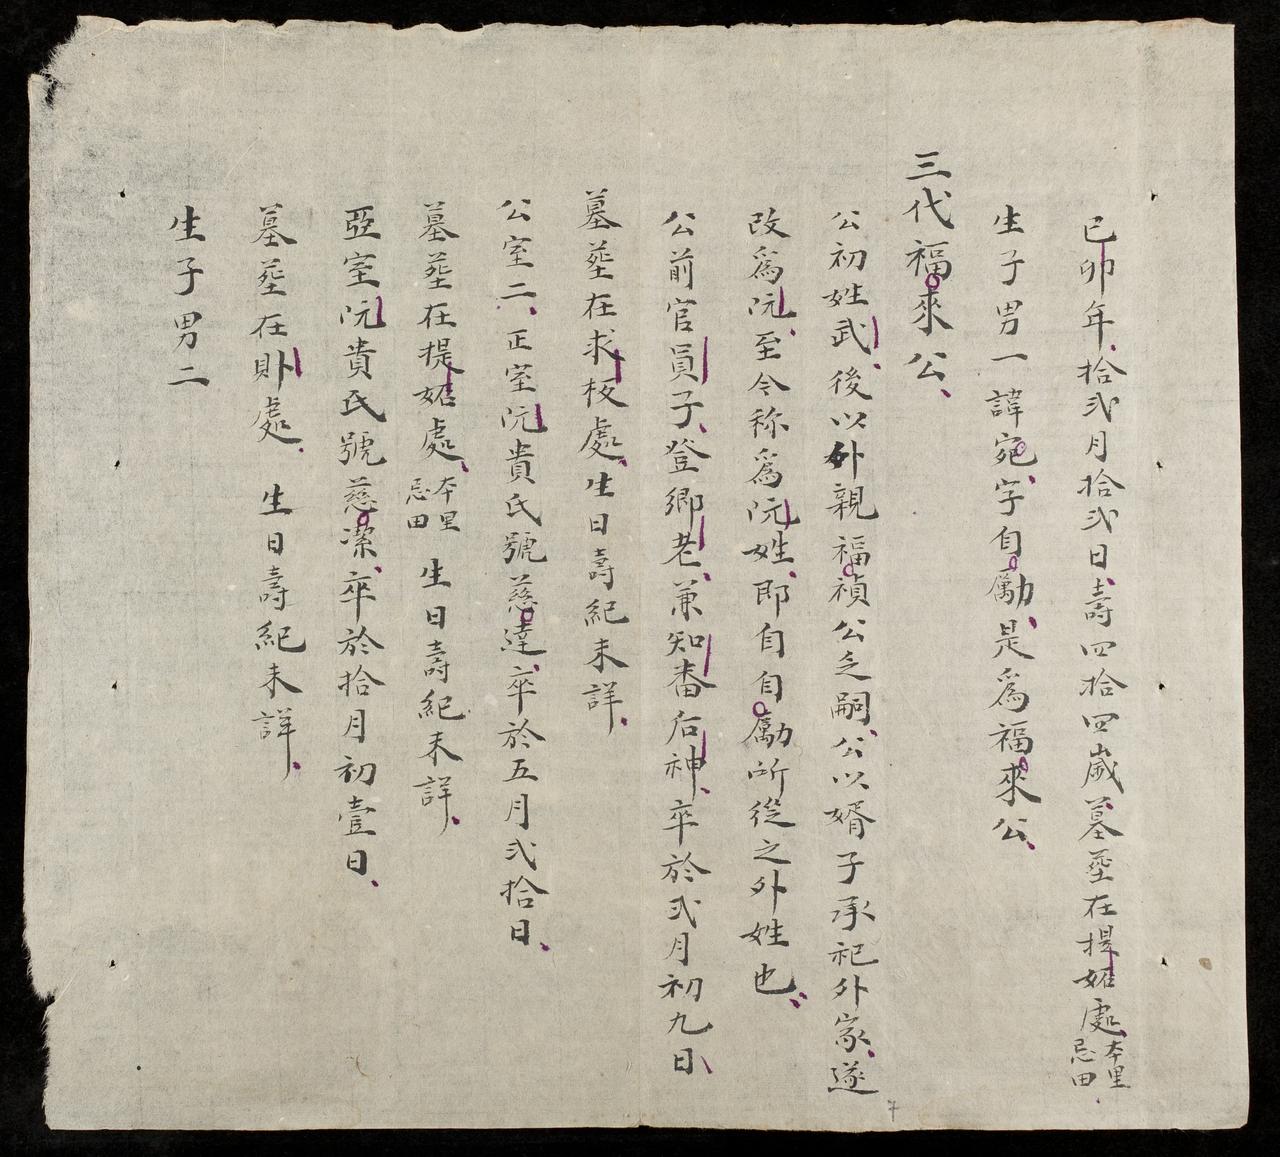 己卯年拾弍月拾弍日壽四拾四歲墓塟在提妬處本里忌田
生子男一諱宛字自勵是爲福來公
三代福來公
公初姓武後以外親福禎公乏嗣公以婿子承祀外家遂
改爲阮至今称爲阮姓即自自勵所從之外姓也
公前官員子登鄉老兼知畨后神卒於弍月初九日
墓塟在求板處生日壽紀未詳
公室二正室阮貴氏號慈達卒於五月弍拾日
墓塟在提妬處本里忌田生日壽紀未詳
亞室阮貴氏號慈潔卒於拾月初壹日
墓塟在卧處生日壽紀未詳
生子男二